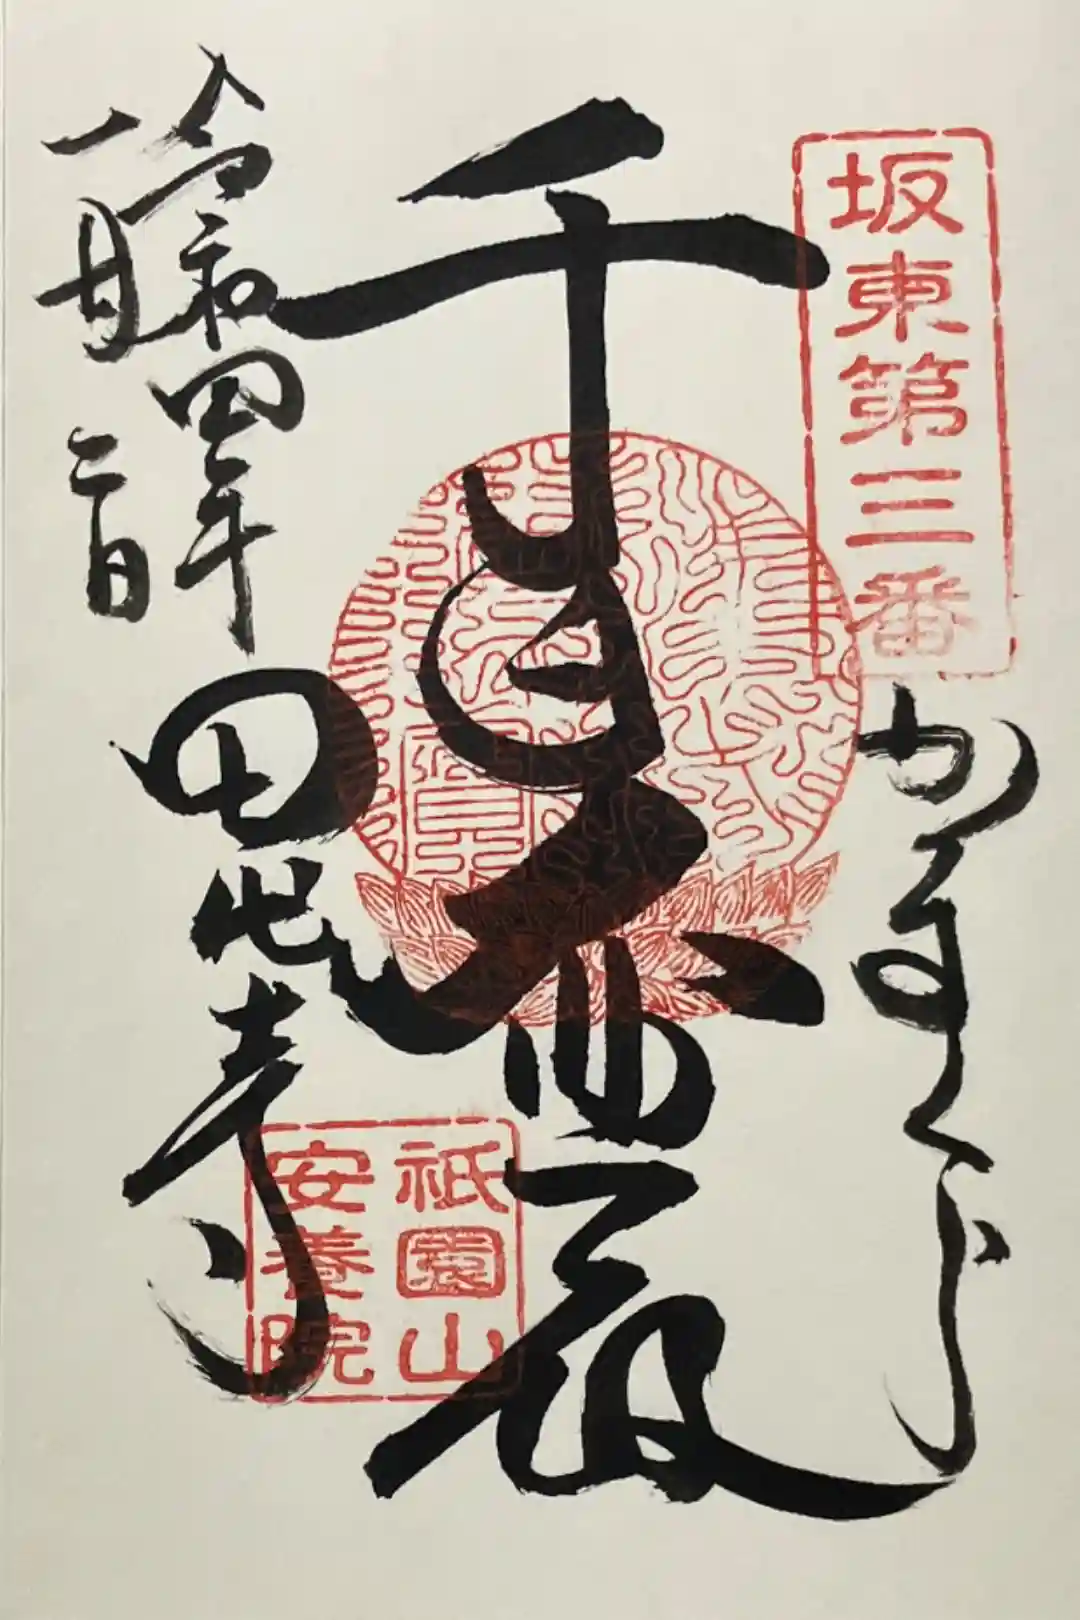 坂東第三番
かまくら
千手大
令和四年
一月二日
田代寺
祇園山
安養院